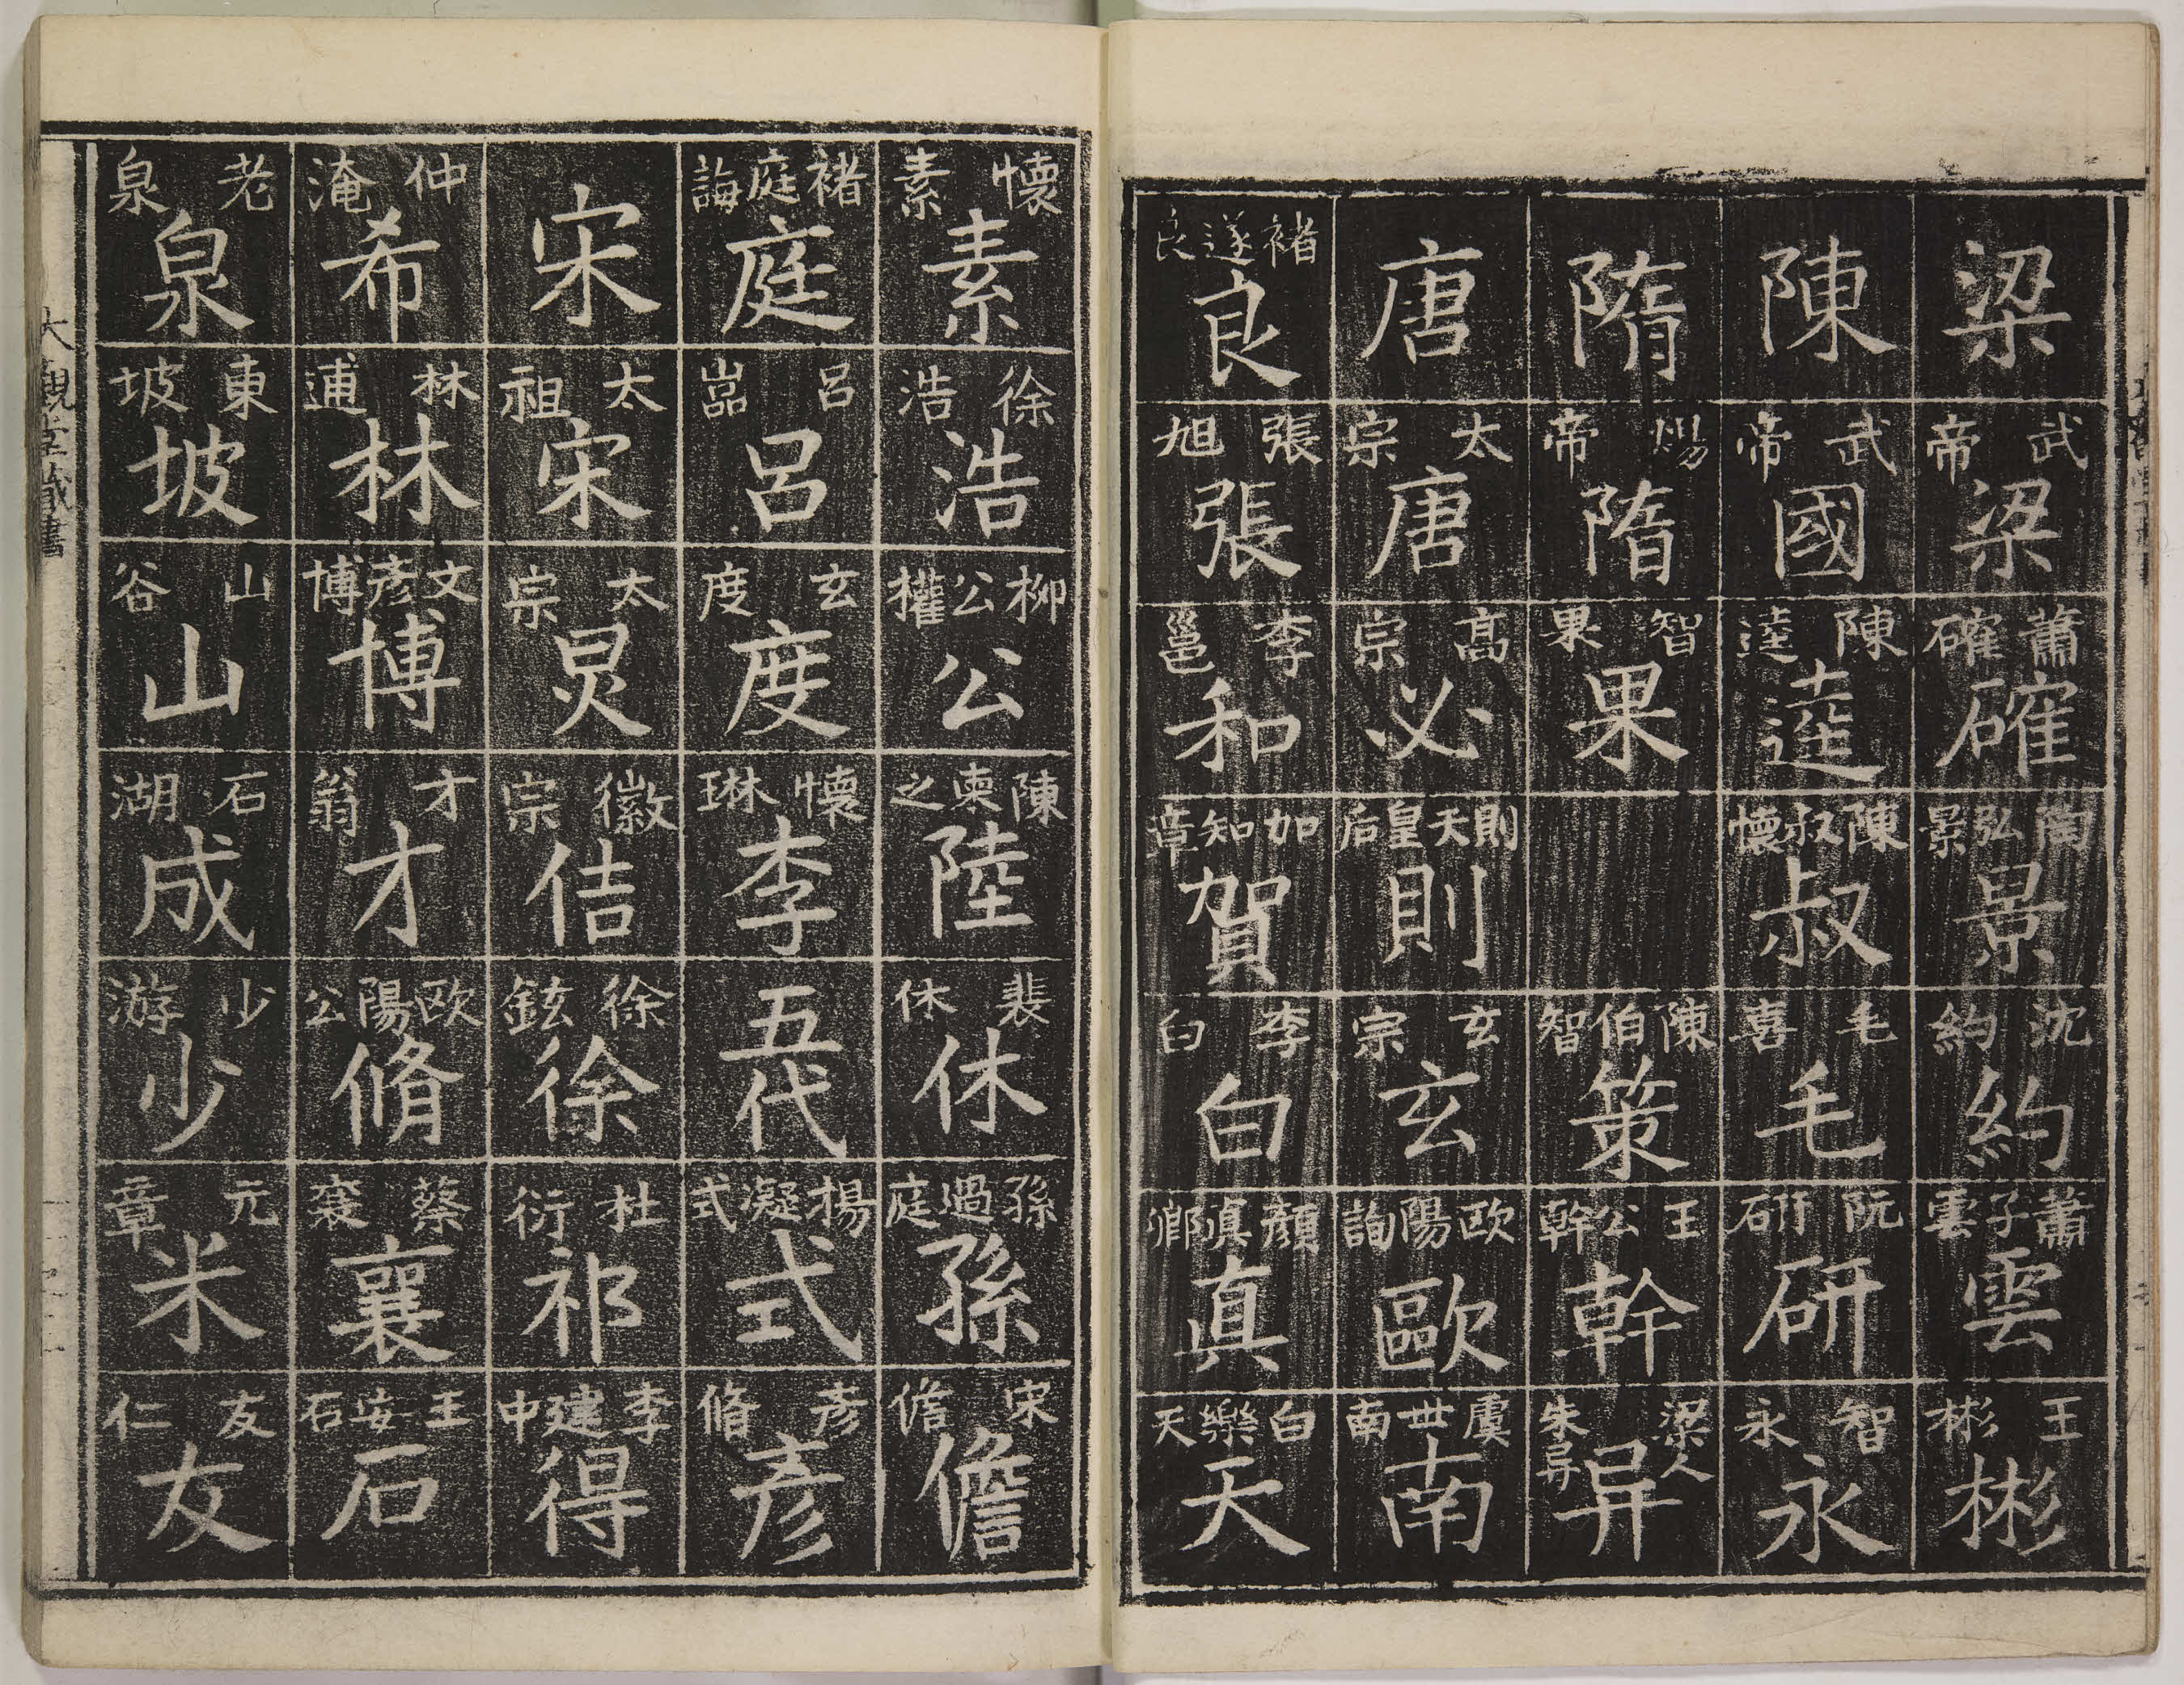 梁
武帝
梁
蕭確
確
陶弘景
景
沈約
約
蕭子雲
雲
王彬
彬
陳
武帝
國
陳逵
逵
陳叔懷
叔
毛喜
毛
阮研
研
智永
永
隋
煬帝
隋
智果
果
陳伯智
策
王公幹
幹
梁人朱异
异
唐
太宗
唐
高宗
必
則天皇后
則
玄宗
玄
欧陽詢
歐
虞世南
南
褚遂良
良
張旭
張
李邕
和
加知章
賀
李白
白
顔眞卿
真
白樂天
天
懐素
素
徐浩
浩
柳公權
公
陳柬之
陸
裴休
休
孫過庭
孫
宋儋
儋
褚庭誨
庭
呂嵓
呂
玄度
度
懐琳
李
五代
楊凝式
式
彦脩
彦
宋
太祖
宋
太宗
炅
徽宗
佶
徐鉉
徐
杜衍
祁
李建中
得
仲淹
希
林逋
林
文彦博
博
才翁
才
欧陽公
脩
蔡襄
襄
王安石
石
老泉
泉
東坡
坡
山谷
山
石湖
成
少游
少
元章
米
友仁
友